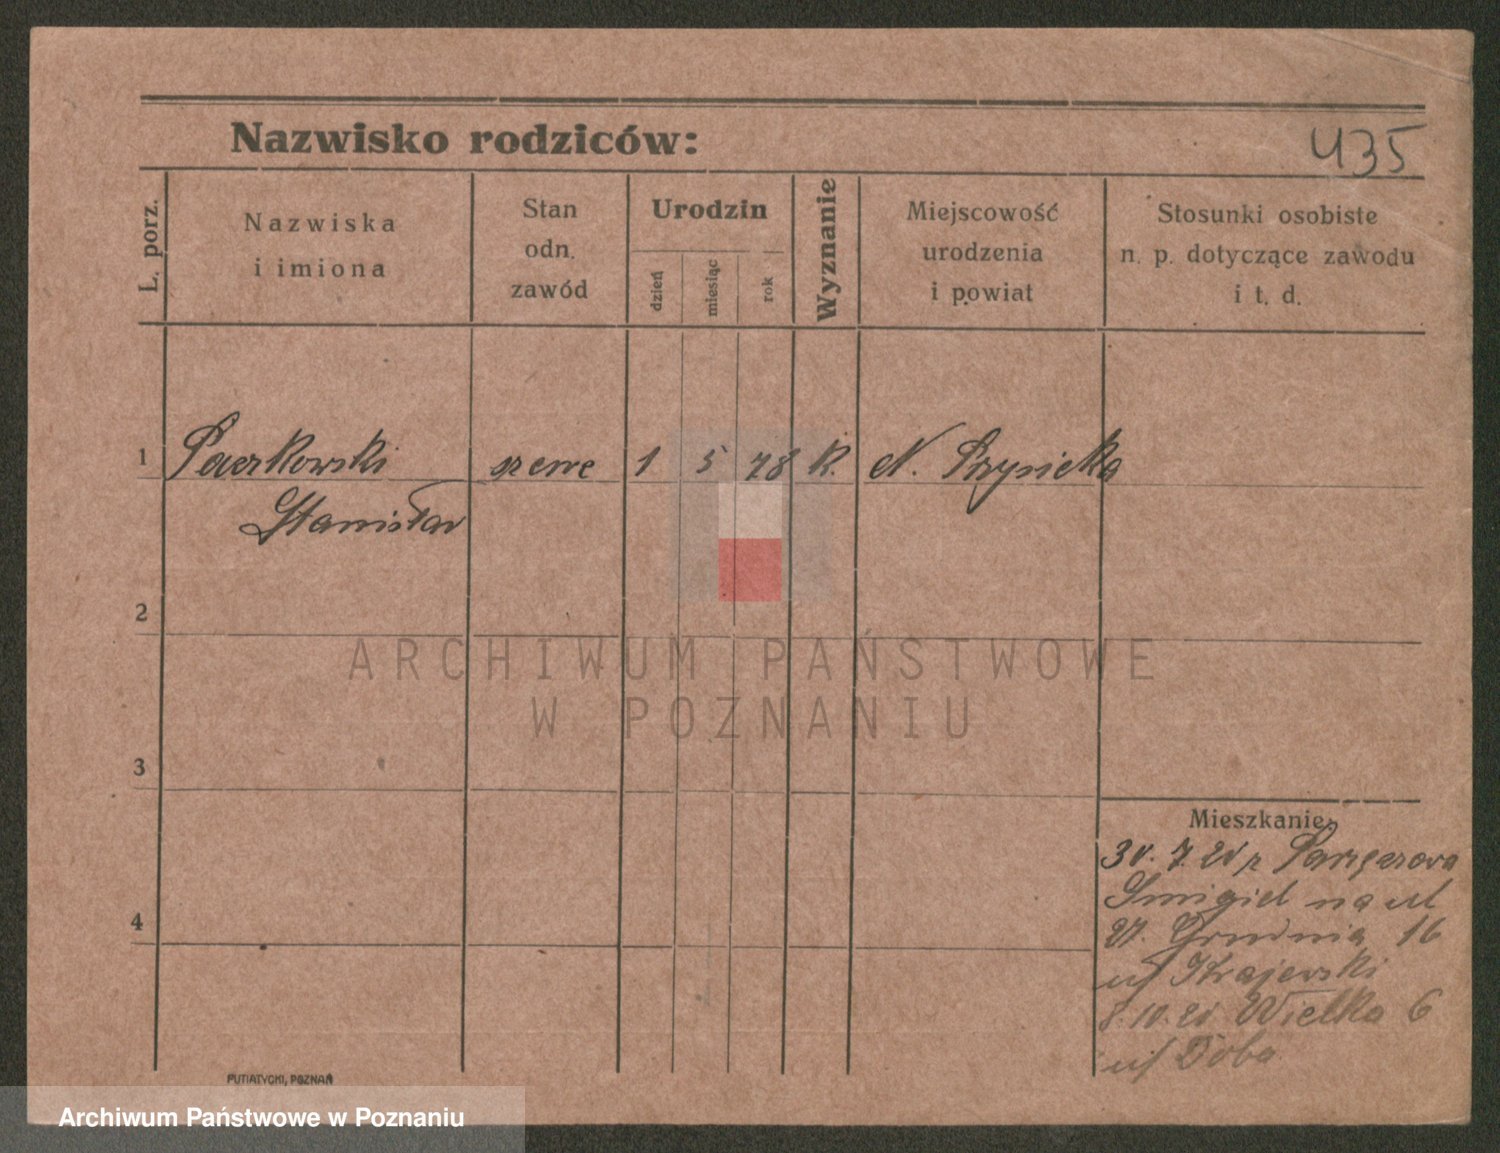 Nazwisko rodziców:
435
L. porz.
Nazwiska
i imiona
Stan
odn.
zawód
Urodzin
dzień
miesiąc
rok
Wyznanie
Miejscowość
urodzenia
i powiat
Stosunki osobiste
n. p. dotyczące zawodu
i t. d.
1 Paczkowski szewc 1 5 78 K. N. Przysieka
Stanisław
2
ARCHIWUM PAŃSTWOWE
W POZNANIU
3
Mieszkanie:
30. 7. 20 z
Śmigiel na ul
4
27. Grudnia 16
u/ Krajewski
8. 10. 20 Wielka 6
u/
PUTIATYCKI, POZNAŃ
Archiwum Państwowe w Poznaniu